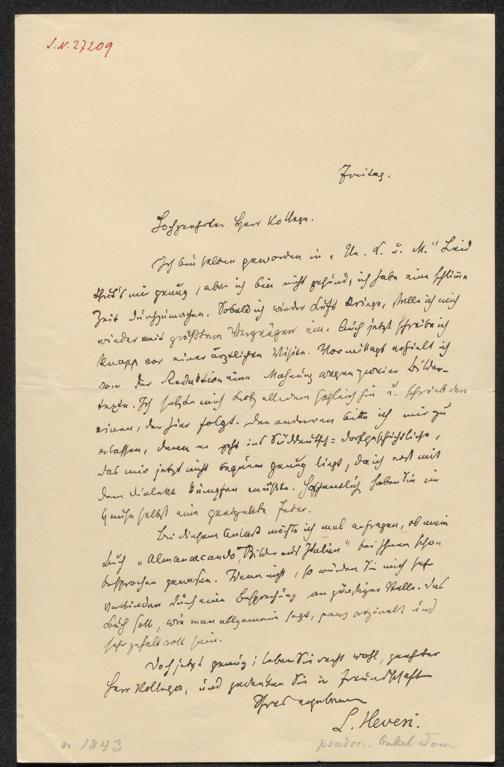 J.N. 27209
Freitag.
Hochgeehrter Herr Kollege.
Ich bin selten geworden in „Ue. L. u. M." Leid
thut's mir genug, aber ich bin nicht gesund, ich habe eine schlimme
Zeit durchzumachen. Sobald ich wieder Luft kriege, stelle ich mich
wieder mit größtem Vergnügen ein. Auch jetzt schreibe ich
knapp vor einer ärztlichen Visite. Vormittags erhielt ich
von der Redaktion eine Mahnung wegen zweier Bilder-
texte. Ich setzte mich trotz alledem sogleich hin u. schrieb den
einen, der hier folgt. Den anderen bitte ich mir zu
erlassen, denn er geht ins Süddeutsch-dorfgeschichtliche,
das mir jetzt nicht bequem genug liegt, da ich erst mit
dem Dialekt kämpfen müßte. Hoffentlich haben Sie im
Hause selbst eine geeignete Feder.
Bei diesem Anlaß möchte ich mal anfragen, ob mein
Buch „Almanaccando, Bilder aus Italien" bei Ihnen schon
besprochen gewesen. Wenn nicht, so würden Sie mich sehr
verbinden durch eine Besprechung an günstiger Stelle. Das
Buch soll, wie man allgemein sagt, ganz originell und
sehr gehaltvoll sein.
Doch jetzt genug; leben Sie recht wohl, geehrter
Herr Kollege, und gedenken Sie in Freundschaft
Ihres ergebenen
L. Hevesi.
n. 1893
pseudon. Onkel Tom